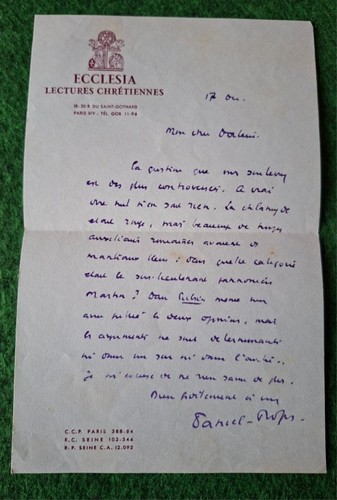 ECCLESIA
LECTURES CHRÉTIENNES
18-20 R. DU SAINT-GOTHARD
PARIS XIV - TÉL. GOB 11-96
17 Oct.
Mon cher
La question que vous soulevez
est des plus controversées. A vrai
dire nul n'en sait rien. La chlamyde
était rouge, mais beaucoup de troupes
auxiliaires romaines avaient des
manteaux bleus : dans quelle catégorie
était le sous-lieutenant pannonien
Martin ? Dans même nous
avons publié les deux opinions, mais
les arguments ne sont déterminants
ni dans un sens ni dans l'autre..
je m'excuse de ne rien savoir de plus.
Bien fidèlement à vous
Daniel-Rops.
C.C.P. PARIS 388-64
R.C. SEINE 103-346
R.P. SEINE C.A. 12.092